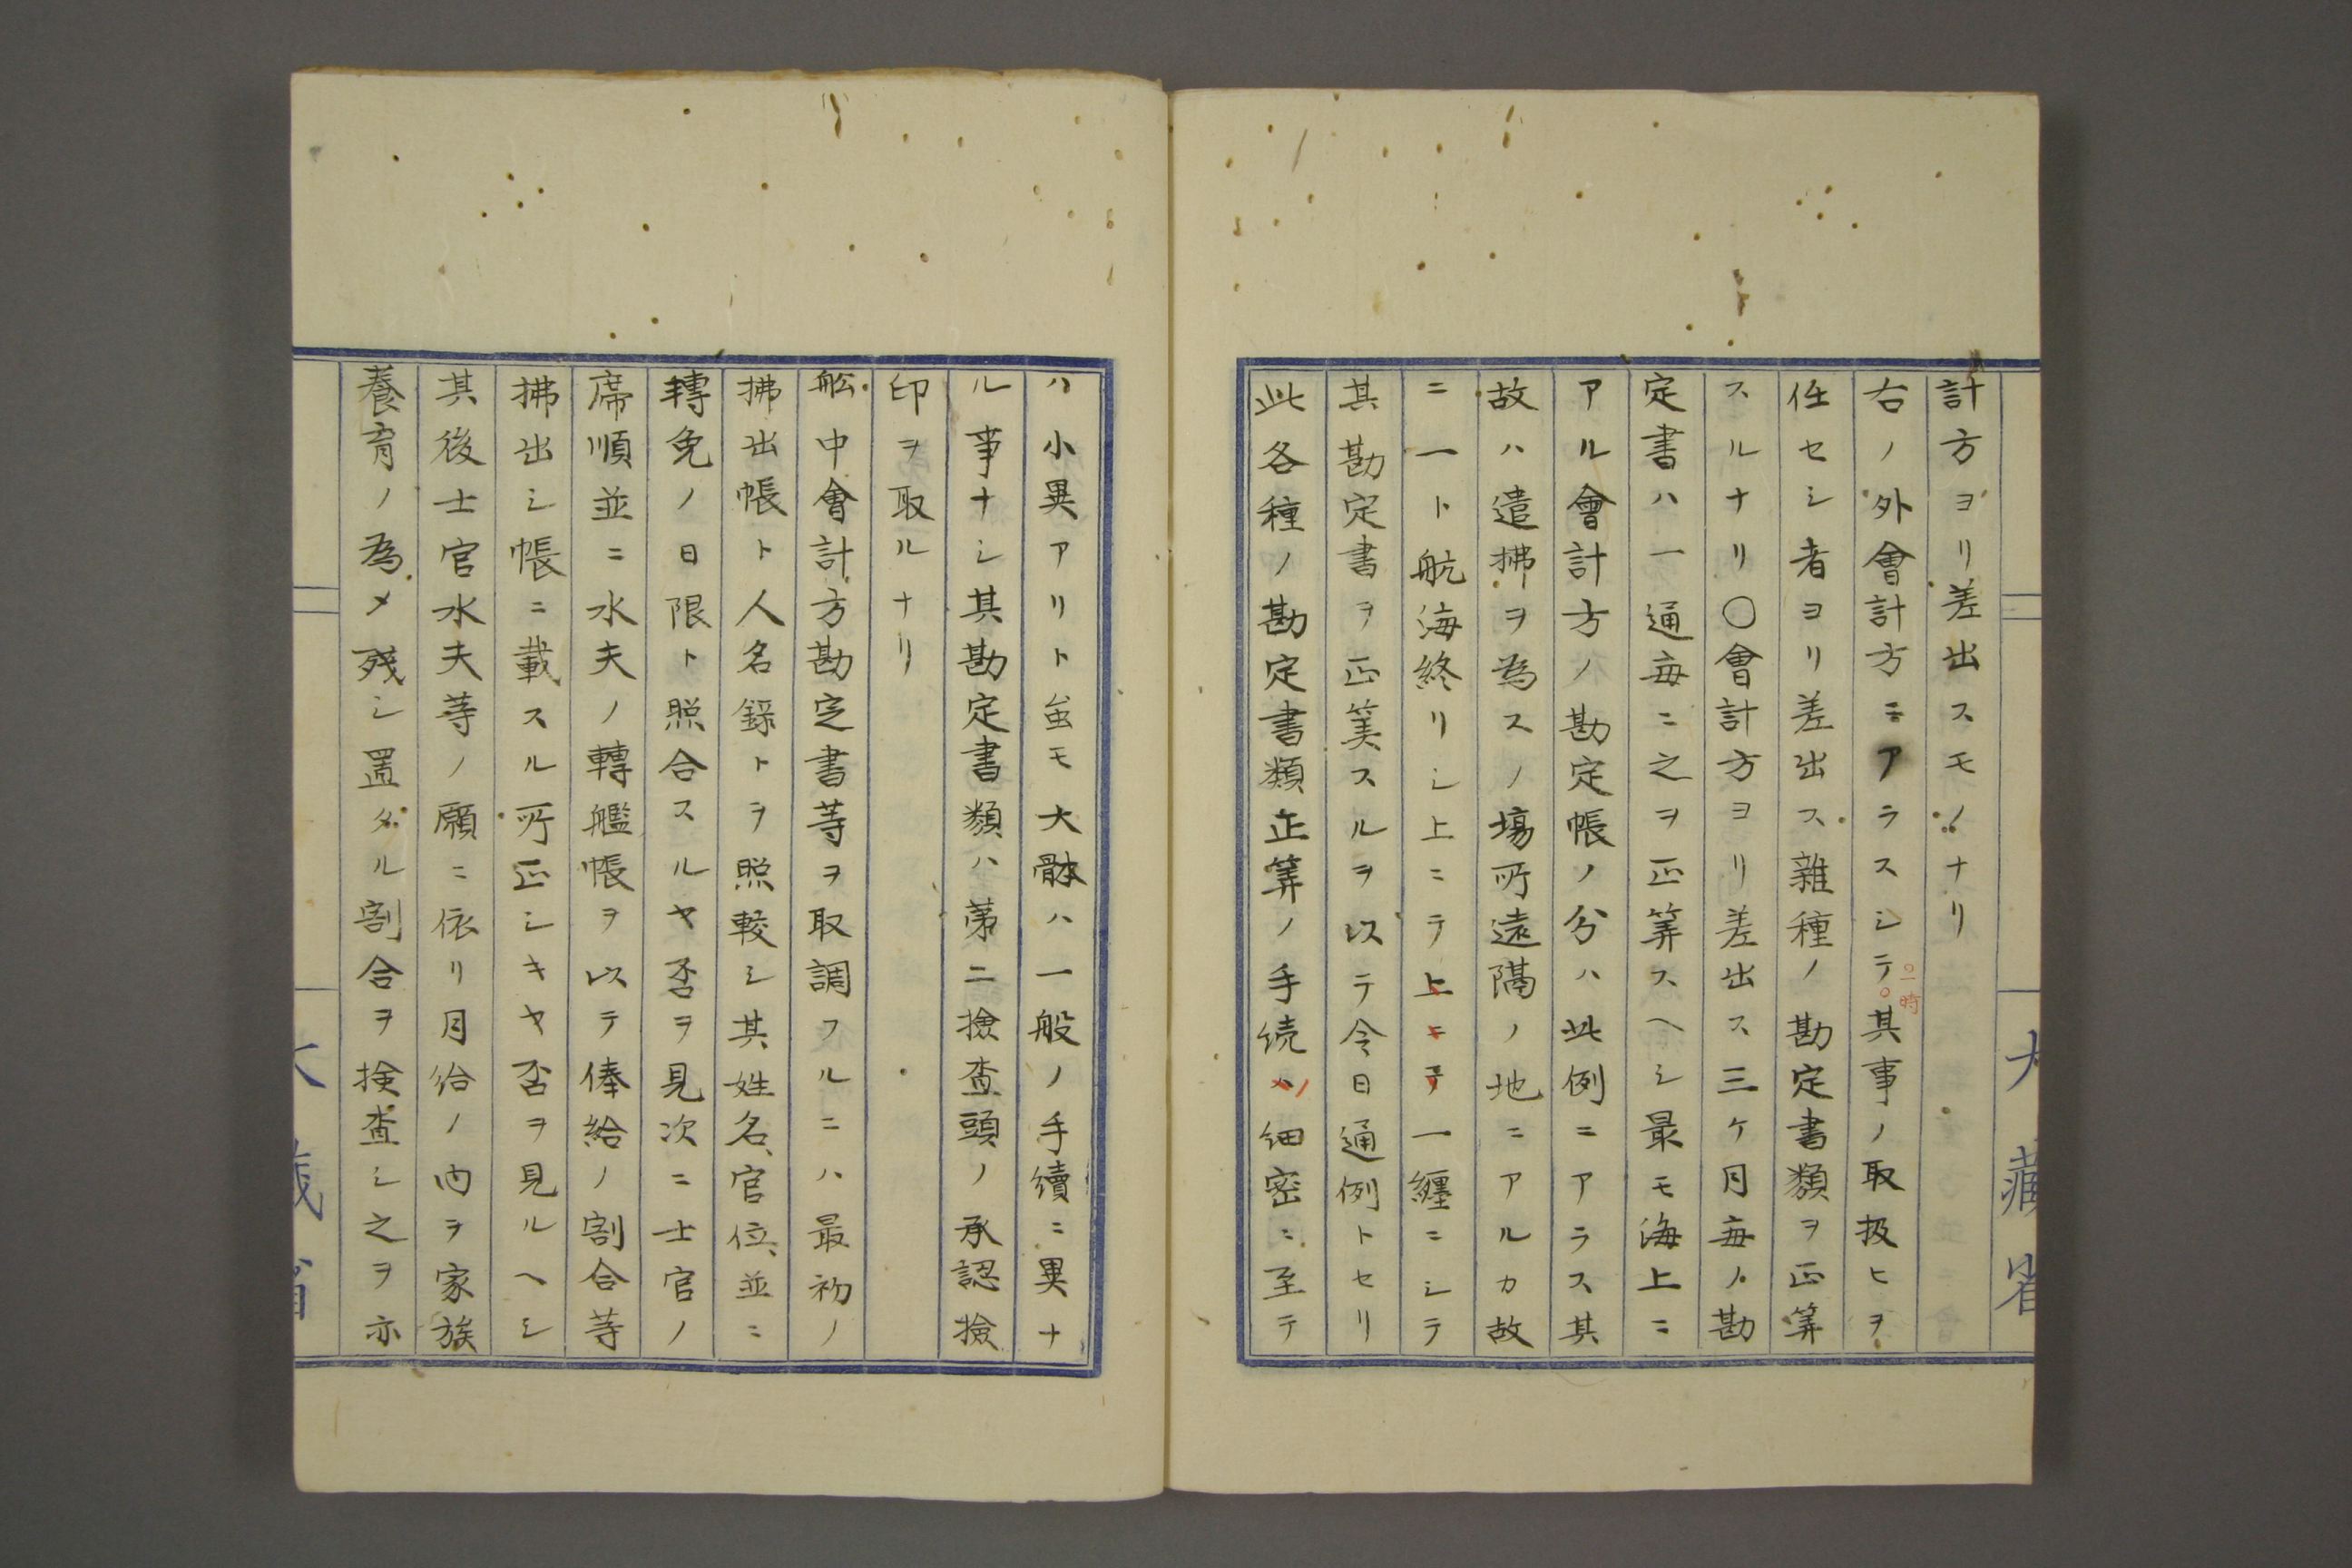 大藏省
計方ヨリ差出スモノナリ
右ノ外會計方ニアラスシテ其事ノ取扱ヒヲ
○一時
任セシ者ヨリ差出ス雜種ノ勘定書類ヲ正算
スルナリ〇會計方ヨリ差出ス三ケ月毎ノ勘
定書ハ一通毎ニ之ヲ正算スヘシ最モ海上ニ
アル會計方ノ勘定帳ノ分ハ此例ニアラス其
故ハ遣拂ヲ為スノ場所遠隔ノ地ニアルカ故
ニ一ト航海終リシ上ニテ上ニテ一纏ニシテ
其勘定書ヲ正筭スルヲ以テ今日通例トセリ
此各種ノ勘定書類正算ノ手続ハ細密ニ至テ
ハ小異アリト虽モ大骵ハ一般ノ手續ニ異ナ
ル事ナシ其勘定書類ハ第二撿査頭ノ承認撿
印ヲ取ルナリ
舩中會計方勘定書等ヲ取調フルニハ最初ノ
拂出帳ト人名録トヲ照較シ其姓名、官位、並ニ
轉免ノ日限ト照合スルヤ否ヲ見次ニ士官ノ
席順並ニ水夫ノ轉艦帳ヲ以テ俸給ノ割合等
拂出シ帳ニ載スル所正シキヤ否ヲ見ルヘシ
其後士官水夫等ノ願ニ依リ月給ノ内ヲ家族
養育ノ為メ残シ置タル割合ヲ検査シ之ヲ亦
大藏省